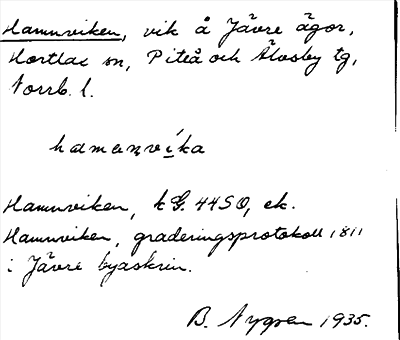 Hamnviken, vik å Jävre ägor,
Hortlax sn, Piteå och Älvsby tg,
Norrb. l.
hamanvíka
Hamnviken, kG. 44SO, ek.
Hamnviken, graderingsprotokoll 1811
i Jävre byaskrin.
B. Nygren 1935.